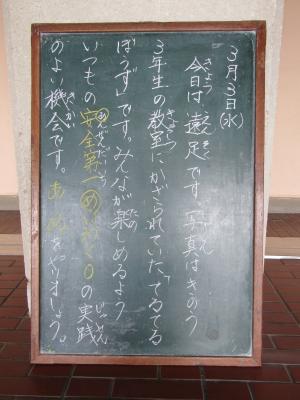 3月3日(水)
今日は、遠足です。写真はきのう
3年生の教室にかざられていた「てるてる
ぼうず」です。みんなが楽しめるよう
いつもの安全第一めいわく0の実践
のよい機会です。あめをやりましょう。